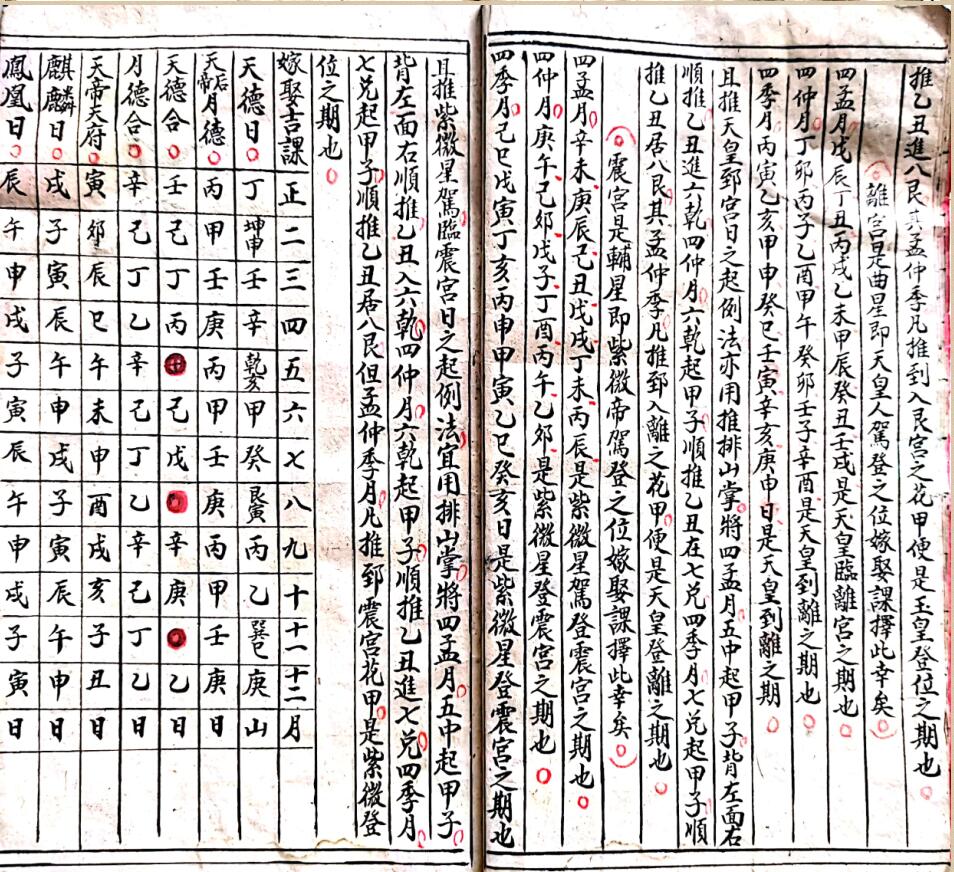 推乙丑進八艮其孟仲季凡推到入艮宮之花甲便是玉皇登位之期也
離宮是曲星即天皇人駕登之位嫁娶課擇此幸矣
四孟月戊辰丁丑丙戌乙未甲辰癸丑壬戌是天皇臨離宮之期也
四仲月丁卯丙子乙酉甲午癸卯壬子辛酉是天皇到離之期也
四季月丙寅乙亥甲申癸巳壬寅辛亥庚申日是天皇到離之期
且推天皇到宮日之起例法亦用推排山掌將四孟月五中起甲子背左面右
順推乙丑進六乾四仲月六乾起甲子順推乙丑在七兌四季月七兌起甲子順
推乙丑居八艮其孟仲季凡推到入離之花甲便是天皇登離之期也
震宮是輔星即紫微帝駕登之位嫁娶課擇此幸矣
四孟月辛未庚辰己丑戊戌丁未丙辰是紫微星駕登震宮之期也
四仲月庚午己卯戊子丁酉丙午乙卯是紫微星登震宮之期也
四季月己巳戊寅丁亥丙申甲寅乙巳癸亥日是紫微星登震宮之期也
且推紫微星駕臨震宮日之起例法宜用排山掌將四孟月五中起甲子
背左面右順推乙丑入六乾四仲月六乾起甲子順推乙丑進七兌四季月
七兌起甲子順推乙丑居八艮但孟仲季月凡推到震宮花甲是紫微登
位之期也
嫁娶吉課 正 二 三 四 五 六 七 八 九 十 十一 十二 月
天德日 丁 坤申 壬 辛 乾亥 甲 癸 艮寅 丙 乙 巽巳 庚 山
天帝后月德 丙 甲 壬 庚 丙 甲 壬 庚 丙 甲 壬 庚 日
天德合 壬 己 丁 丙 己 戊 辛 庚 乙 日
月德合 辛 己 丁 乙 辛 己 丁 乙 辛 己 丁 乙 日
天帝天府 寅 卯 辰 巳 午 未 申 酉 戌 亥 子 丑 日
麒麟日 戌 子 寅 辰 午 申 戌 子 寅 辰 午 申 日
鳳凰日 辰 午 申 戌 子 寅 辰 午 申 戌 子 寅 日